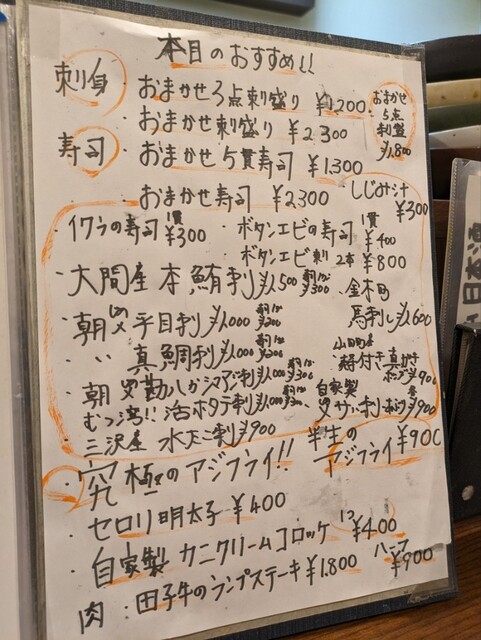 本日のおすすめ!!
刺身 おまかせ3点刺盛り ¥1200
おまかせ5点刺盛 ¥1,800
おまかせ刺盛り ¥2300
寿司 おまかせ5貫寿司 ¥1,300
おまかせ寿司 ¥2,300
しじみ汁 ¥300
・イクラの寿司 1貫 ¥300
・ボタンエビの寿司 1貫 ¥400
ボタンエビ刺 2本 ¥800
・大間産 本鮪刺 ¥1,500 寿司1カン ¥300
・金木町 馬刺し ¥1,600
・朝〆 平目刺 ¥1,000 寿司1カン ¥200
〃 真鯛刺 ¥1,000 寿司1カン ¥200
殻付き真がき ポン酢 ¥900
・朝〆
シマアジ刺 ¥1,000 寿司1カン ¥300
むつ湾!! 活ホタテ刺 ¥1,000 ¥300
自家製 〆サバ刺 ¥900
三沢産 水タコ刺 ¥900
・究極のアジフライ!! 半生のアジフライ ¥900
・セロリ明太子 ¥400
・自家製 カニクリームコロッケ 1コ ¥400
肉:田子牛のランプステーキ ¥1,800 ハーフ ¥900
日本酒